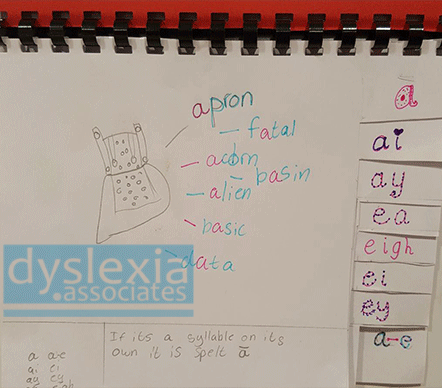 apron
fatal
acorn
basin
alien
basic
data
dyslexia
.associates
If its a syllable on its
own it is spelt ā
a a-e
ai ei
ay ey
ea eigh
a
ai
ay
ea
eigh
ei
ey
a-e